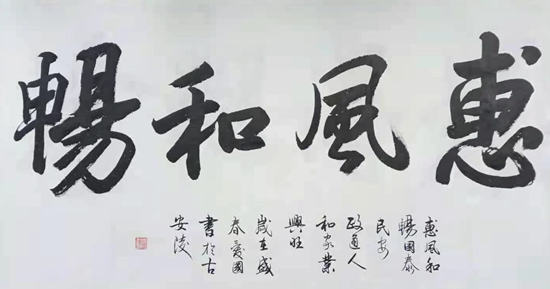 惠風和暢
惠風和
暢國泰
民安
政通人
和家業
興旺
歲在盛
春愛國
書於古
安陵